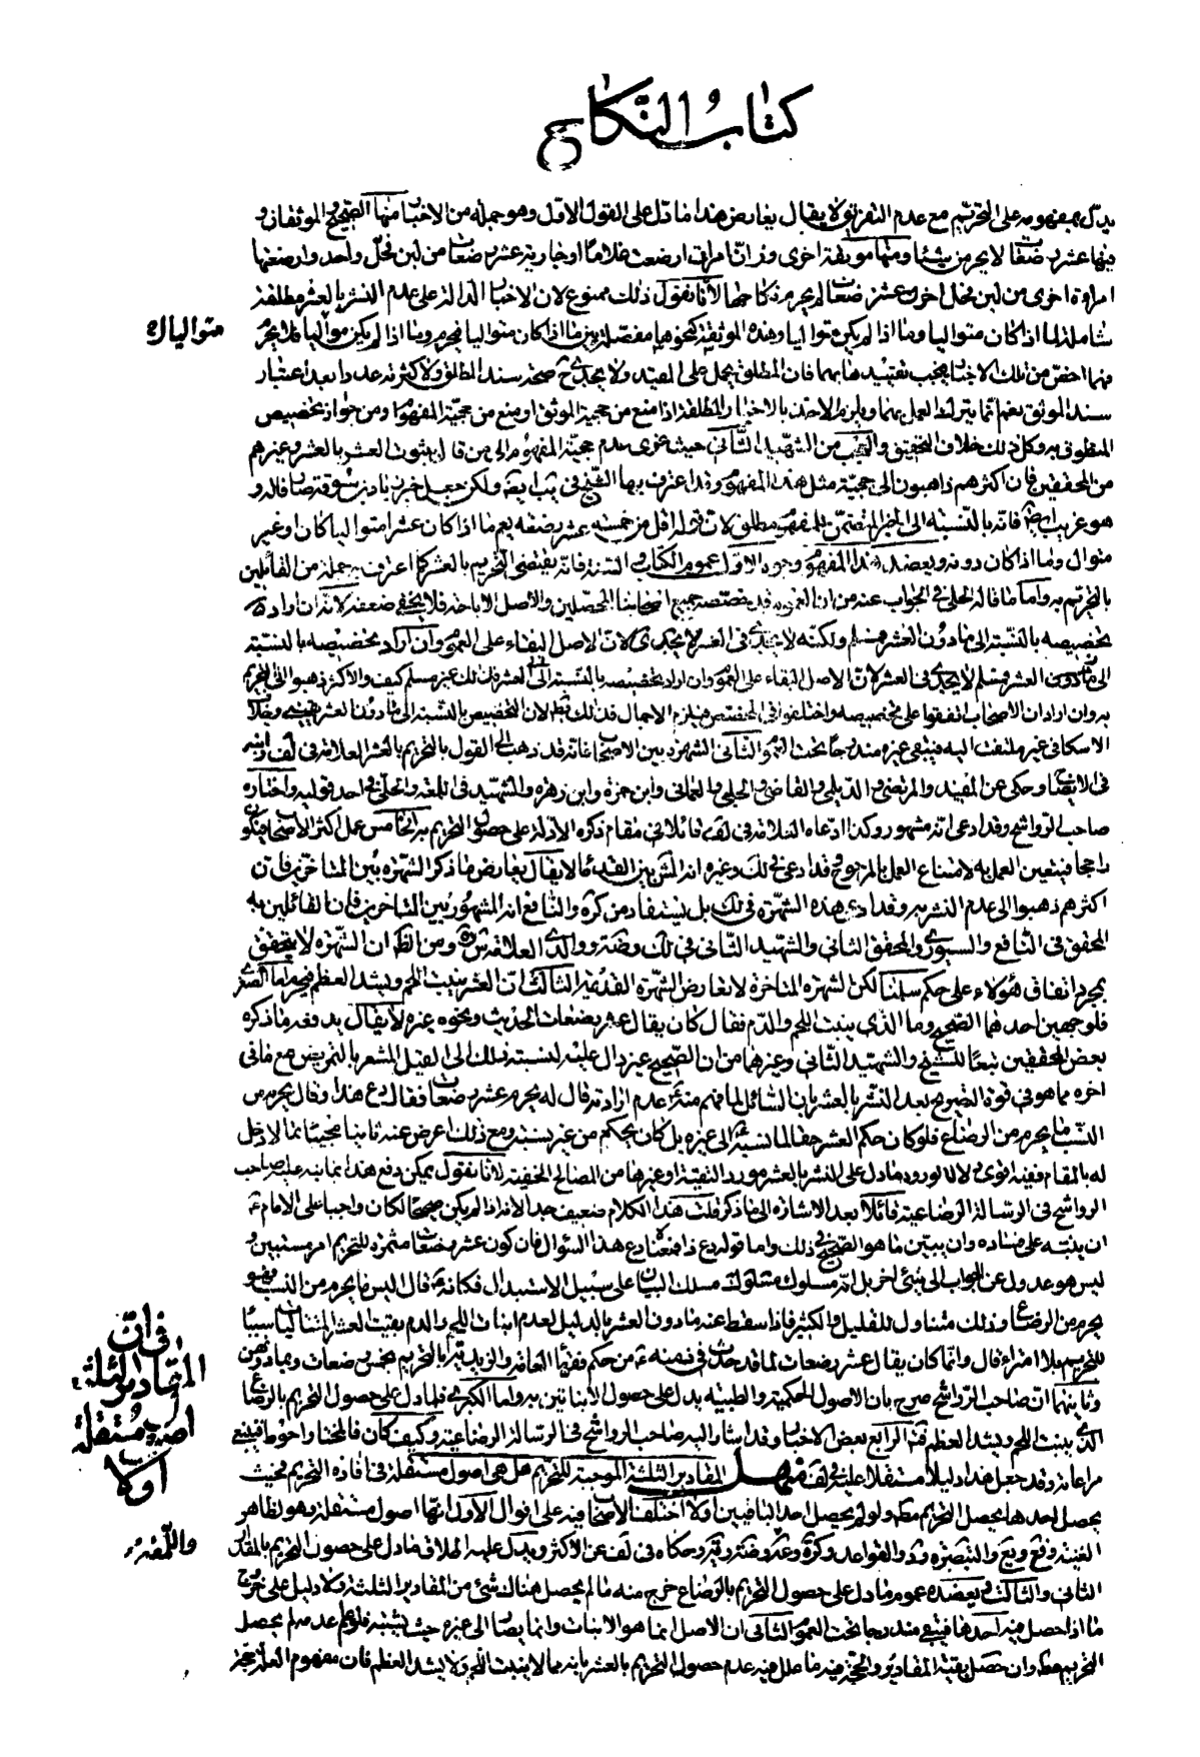 كتاب النكاح
يدل بمفهومه على التحريم مع عدم التفريق لا يقال يعارض هذا ما دل على القول الاول وهو جملة من الاخبار منها الصحيح والموثقان و
فيها عشر رضعات لا يحرمن شيئا ومنها موثقة اخرى وفى امراة ارضعت غلاما او جارية عشر رضعات من لبن فحل واحد وارضعتها
امراة اخرى من لبن فحل اخر عشر رضعات لم يحرم نكاحهما لانا نقول ذلك ممنوع لان الاخبار الدالة على عدم النشر بالعشر مطلقة
شاملة لما اذا كان متواليا وما اذا لم يكن متواليا وهذه الموثقة كنحوها مفصلة بين ما اذا كان متواليا فيحرم وما اذا لم يكن متواليا فلا يحرم
متواليات
فهما اخص من تلك الاخبار فيجب تقييدها بهما فان المطلق يحمل على المقيد ولا يجدى ح صحة سند المطلق ولا كثرته عددا بعد اعتبار
سند الموثق نعم انما يترك العمل بهما ويلزم الاخذ بالاخبار المطلقة اذا منع من حجية الموثق او منع من حجية المفهوم ومن جواز تخصيص
المنطوق به وكل ذلك خلاف التحقيق والعجب من الشهيد الثانى حيث عزى عدم حجية المفهوم الى من قال بثبوت العشر بالعشر وغيرهم
من المحققين فان اكثرهم ذاهبون الى حجية مثل هذا المفهوم وقد اعترف بها الشيخ فى
هو غريب ايضا فانه بالنسبة الى الخبر المتضمن للمفهوم مطلق لان قوله اقل من خمسة عشر رضعة يعم ما اذا كان عشرا متواليا كان او غير
متوال وما اذا كان دونه ويعضد هذا المفهوم وجوه الاول عموم الكتاب و السنة فانه يقتضى التحريم بالعشر كما اعترف به جملة من القائلين
بالتحريم به واما ما قاله الحلى فى الجواب عنه من ان العموم قد خصصه جميع اصحابنا المحصلين والاصل الاباحة فلا يخفى ضعفه لانه ان اراد
تخصيصه بالنسبة الى ما دون العشر فمسلم ولكنه لا يجدى فى العشر لان الاصل البقاء على العموم وان اراد تخصيصه بالنسبة
الى ما دون العشر فمسلم لا يجدى فى العشر لان الاصل البقاء على العموم وان اراد تخصيصه بالنسبة الى العشر فذلك غير مسلم كيف والاكثر ذهبوا الى التحريم
به وان اراد ان الاصحاب اتفقوا على تخصيصه واختلفوا فى المخصص فيلزم الاجمال فذلك بط لان التخصيص بالنسبة الى ما دون العشر
الاسكافى غير ملتفت اليه فيبقى غيره مندرجا تحت العموم الثانى الشهرة بين الاصحاب فانه قد ذهب الى القول بالتحريم بالعشر العلامة فى لف
فى الايضاح وحكى عن المفيد والمرتضى والديلمى والقاضى والحلبى والعمانى وابن حمزة وابن زهرة والشهيد فى اللمعة والحلى فى احد قوليه واختاره
صاحب الرواشح وقد ادعى انه مشهور وكذا ادعاه العلامة فى لف قائلا فى مقام ذكره الادلة على حصول التحريم به الخامس عمل اكثر الاصحاب فيكون
راجحا فيتعين العمل به لامتناع العمل بالمرجوح وقد ادعى فى لك وغيره انه المش بين القدماء لا يقال يعارض ما ذكر الشهرة بين المتاخرين فان
اكثرهم ذهبوا الى عدم النشر به وقد ادعى هذه الشهرة فى لك بل يستفاد من كره والنافع انه المشهور بين المتاخرين فان القائلين به
المحقق فى النافع والسيورى والمحقق الثانى والشهيد الثانى فى لك وضه ووالدى العلامة ومن الظ ان الشهرة لا يتحقق
بمجرد اتفاق هؤلاء على حكم سلمنا لكن الشهرة المتاخرة لا تعارض الشهرة القديمة الثالث ان العشر ينبت اللحم ويشد العظم فيحرم اما الصغرى
فلوجهين احدهما الصحيح وما الذى ينبت اللحم والدم فقال كان يقال عشر رضعات الحديث ونحوه غيره لا يقال يدفعه ما ذكره
بعض المحققين تبعا للشيخ والشهيد الثانى وغيرهما من ان الصحيح غير دال عليه لنسبته ذلك الى القيل المشعر بالتمريض مع ما فى
اخره مما هو فى قوة التصريح بعدم النشر بالعشر بان السائل لما فهم منه ع عدم ارادته قال له يحرم عشر رضعات فقال دع هذا وقال يحرم من
النسب ما يحرم من الرضاع فلو كان حكم العشر حقا لما نسبه الى غيره بل كان يحكم من غير نسبة ومع ذلك اعرض عنه ثانيا مجيبا بما لا دخل
له بالمقام ففيه اقوى دلالة لورود ما دل على النشر بالعشر مورد التقية او غيرها من المصالح الخفية لانا نقول يمكن دفع هذا بما نبه عليه صاحب
الرواشح فى الرسالة الرضاعية قائلا بعد الاشارة الى ما ذكر قلت هذا الكلام ضعيف جدا لانه اذا لم يكن صحيحا لكان واجبا على الامام ع
ان ينبه على فساده وان يبين ما هو الصحيح فى ذلك واما قوله دع ذا فمعناه دع هذا السؤال فان كون عشر رضعات مثمرة للتحريم امر مستبين و
ليس هو عدول عن الجواب الى شئ اخر بل انه مسلوك مسلك البيان على سبيل الاستبدال فكانه ع قال اليس ما يحرم من النسب فهو
يحرم من الرضاع وذلك متناول للقليل والكثير فاذا سقط عنه ما دون العشر بالدليل لعدم انبات اللحم والدم بقيت العشر المتتاليات سببا
للتحريم بلا امتراء قال وانما كان يقال عشر رضعات
وثانيهما ان صاحب الرواشح صرح بان الاصول الحكمية والطبية يدل على حصول الانبات بين به واما الكبرى فلما دل على حصول التحريم بالرضاع
الذى ينبت اللحم ويشد العظم الرابع بعض الاخبار وقد اشار اليه صاحب الرواشح فى الرسالة الرضاعية وكيف كان فالمختار احوط فينبغى
مراعاته وقد جعل هذا دليلا مستقلا عليه فى لف منهل المقادير الثلثة الموجبة للتحريم هل هى اصول مستقلة فى افادة التحريم فحيث
فى ان
المقادير الثلثة
اصول مستقلة
او لا
يحصل احدها يحصل التحريم مط ولو لم يحصل احد الباقيين او لا اختلف الاصحاب فيه على اقوال الاول انها اصول مستقلة وهو لظاهر
الغنية وفع ويع والتبصرة وشد والقواعد وكرة وحكاه فى لف عن الاكثر ويدل عليه اطلاق ما دل على حصول التحريم بالمقدار
واللمعة
الثانى والثالث ويعضده عموم ما دل على حصول التحريم بالرضاع خرج منه ما لم يحصل هناك شئ من المقادير الثلثة ولا دليل على خروج
ما اذا حصل فيه احدها فيبقى مندرجا تحت العموم الثانى ان الاصل انما هو الانبات وانما يصار الى غيره حيث يشتبه فلو علم عدمه لم يحصل
التحريم مط وان حصل بقية المقادير والحجة فيه ما علل فيه عدم حصول التحريم بالعشر بانه مما لا ينبت اللحم ولا يشد العظم فان مفهوم العلة